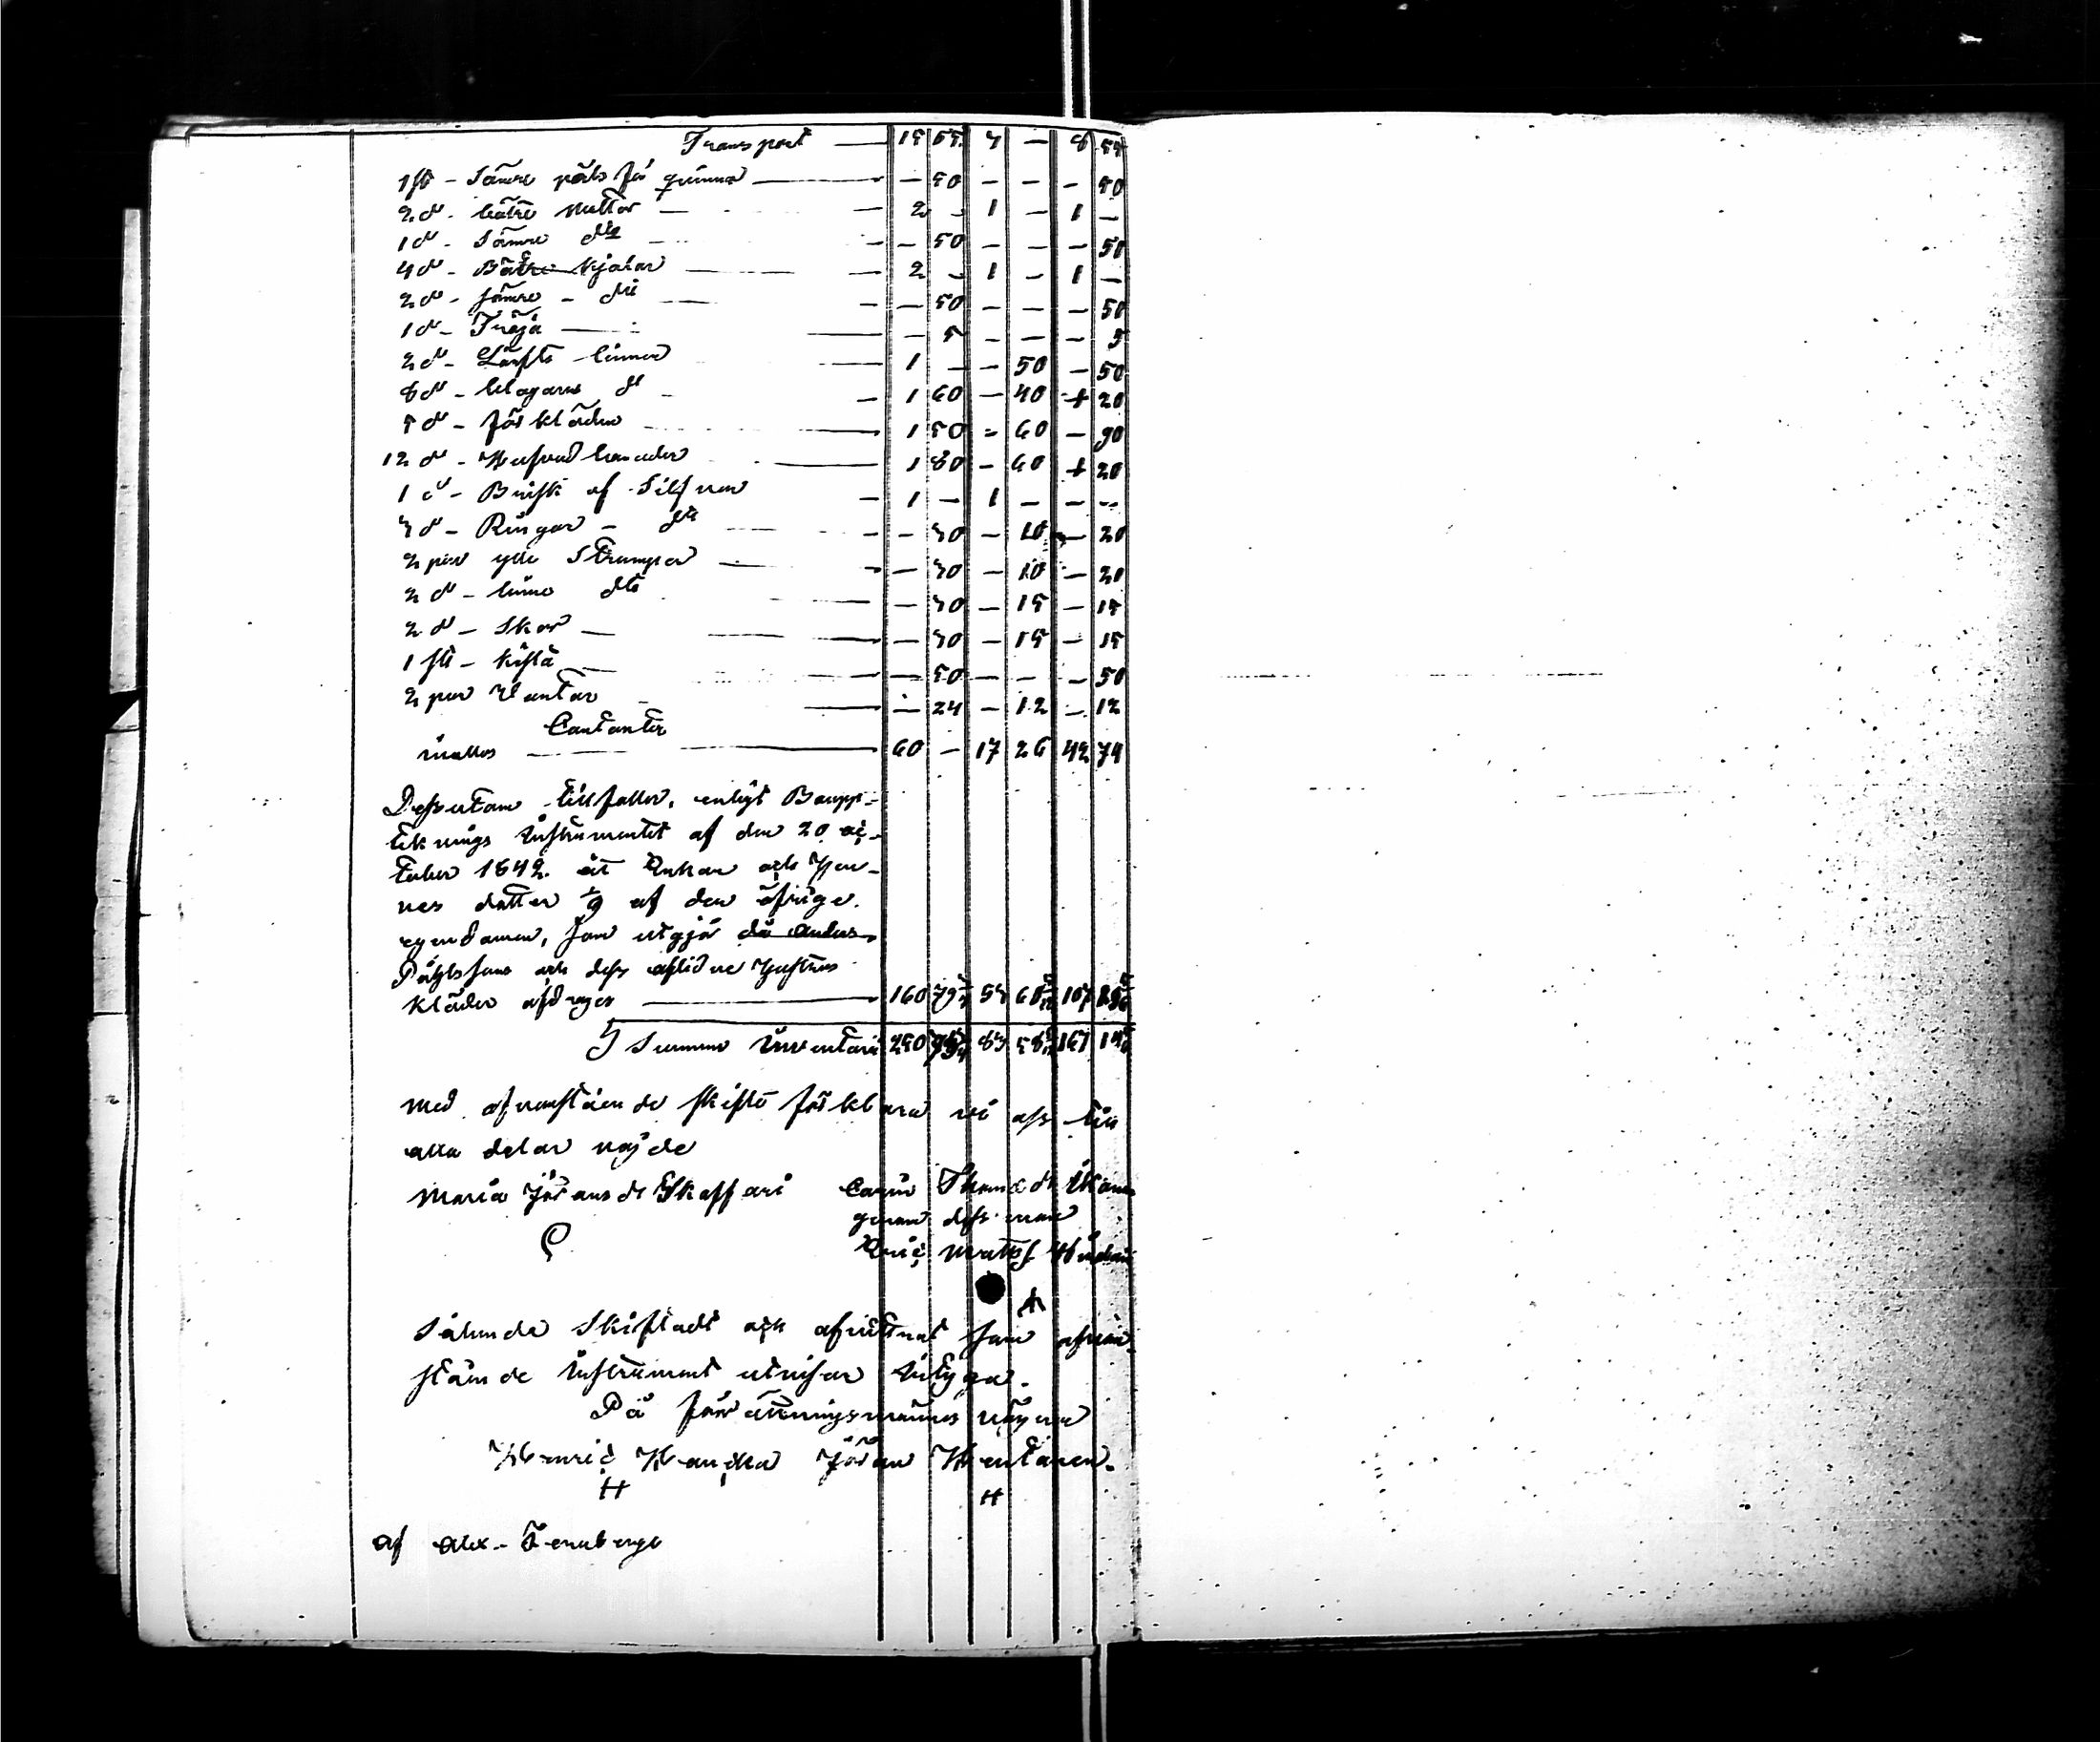 Transport — 15 55 7 — 8 55
1 st - Sämre päls för qvinnor — — 50 — — — 50
2 d - bätre Muttor — 2 — 1 — 1 —
1 d - Sämre dto — — 50 — — — 50
4 d - Bätre kjolar — 2 — 1 — 1 —
2 d - sämre - dto — — 50 — — — 50
1 d - Tröja — — 5 — — — 5
2 d - Lärfts linnen — 1 — — 50 — 50
8 d - blagarns d — 1 60 — 40 + 20
5 d - förkläden — 1 50 - 60 — 90
12 d - Hufvud banader — 1 80 — 60 + 20
1 d - Brisk af Silfver — 1 — 1 — — —
3 d - Ringar - dto — — 30 — 10 — 20
2 par ylle Strumpor — — 30 — 10 — 20
2 d - linne dto — 30 — 15 — 15
2 d - Skor — — 30 — 15 — 15
1 st - kista — — 50 — — — 50
2 par Vantar — — 24 — 12 — 12
Contanter
inalles — 60 — 17 26 42 74
Dessutom tillfaller, enligt Baupp-
tecknings Instrumentet af den 20 oc-
tober 1842. åt Enkan och Hen-
nes dotter 1/9 af den öfrige
egendomen, som utgjör då Anders
Påhlsson och dess aflidne Hustrus
kläder afdrages — 160 79 53 60 107
I Summa Inventarii 250 83 58 167
Med ofvanstående skifte förklara vi oss till
alla delar nöjde
Maria Jörans dr Skaffari Carin Thoms dr
genom dess man
Eric Matts
Sålunda Skiftadt och afvittrat som ofvan-
stående Instrument utvisar intyga.
På förrättningsmäns vägnar
Henric Hannkka Jöran Hentonen.
H H
af Alex. Tennberg